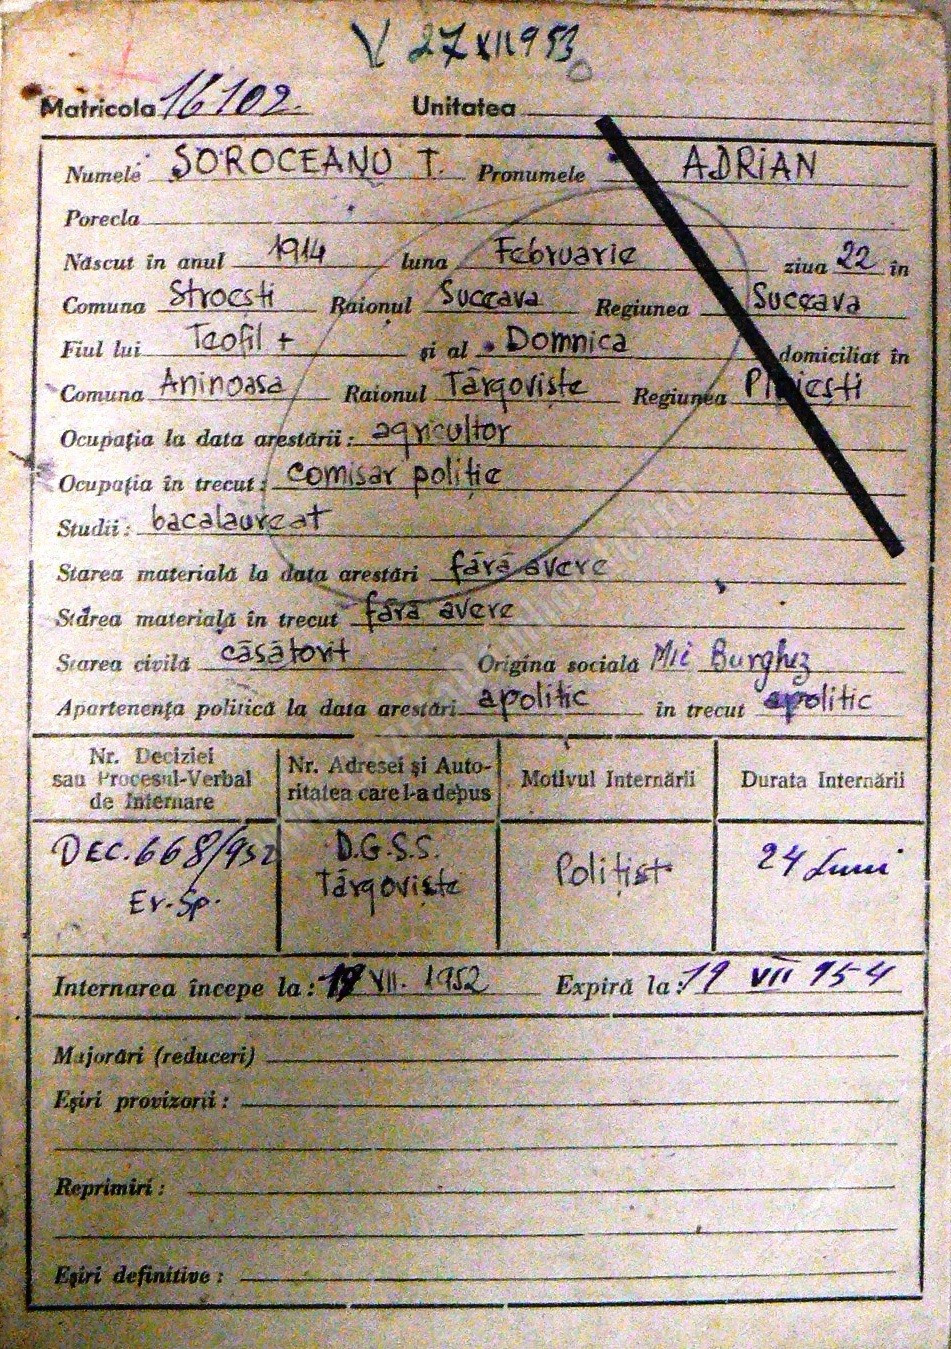 V 27 XII 953
Matricola 16102. Unitatea
Numele SOROCEANU T. Pronumele ADRIAN
Porecla
Născut în anul 1914 luna Februarie ziua 22 în
Comuna Strocști Raionul Suceava Regiunea Suceava
Fiul lui Teofil + și al Domnica domiciliat în
Comuna Aninoasa Raionul Târgoviște Regiunea Ploiești
Ocupația la data arestării : agricultor
Ocupația în trecut : comisar poliție
Studii : bacalaureat
Starea materială la data arestări fără avere
Starea materială în trecut fără avere
Starea civilă căsătorit Origina socială Mic Burghez
Apartenența politică la data arestări apolitic în trecut apolitic
Nr. Deciziei sau Procesul-Verbal de Internare
Nr. Adresei și Auto-
ritatea care l-a depus
Motivul Internării Durata Internării
DEC. 668/952 D.G.S.S. Polițist 24 Luni
Ev. Sp. Târgoviște
Internarea începe la : 19 VII. 1952 Expiră la : 19 VII 954
Majorări (reduceri)
Eșiri provizorii :
Reprimiri :
Eșiri definitive :